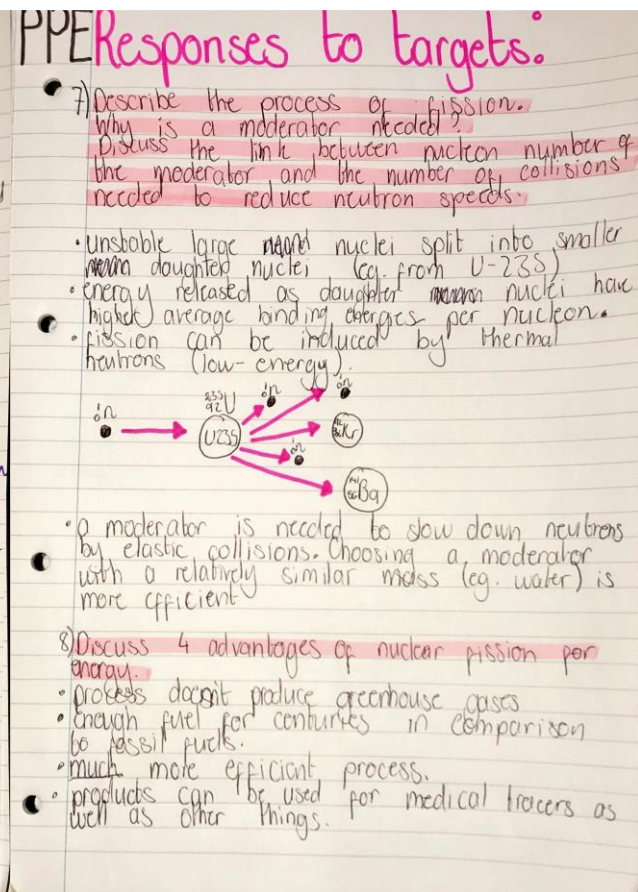 PPE Responses to targets:
7) Describe the process of fission.
Why is a moderator needed?
Discuss the link between nucleon number of
the moderator and the number of collisions
needed to reduce neutron speeds.
• unstable large nuclei split into smaller
daughter nuclei (eg. from U-235)
• energy released as daughter nuclei have
higher average binding energies per nucleon.
• fission can be induced by thermal
neutrons (low-energy).
1 0 n
235 92 U
1 0 n
1 0 n
1 0 n
U235
Kr
1 0 n
141 56 Ba
• a moderator is needed to slow down neutrons
by elastic collisions. Choosing a moderator
with a relatively similar mass (eg. water) is
more efficient
8) Discuss 4 advantages of nuclear fission for
energy.
• process doesn't produce greenhouse gases
• enough fuel for centuries in comparison
to fossil fuels.
• much more efficient process.
• products can be used for medical tracers as
well as other things.